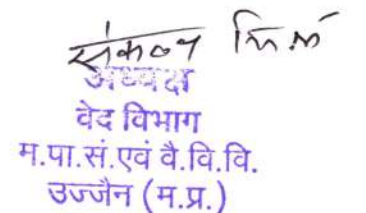 संकल्प मिश्र
अध्यक्ष
वेद विभाग
म.पा.सं.एवं वै.वि.वि.
उज्जैन (म.प्र.)